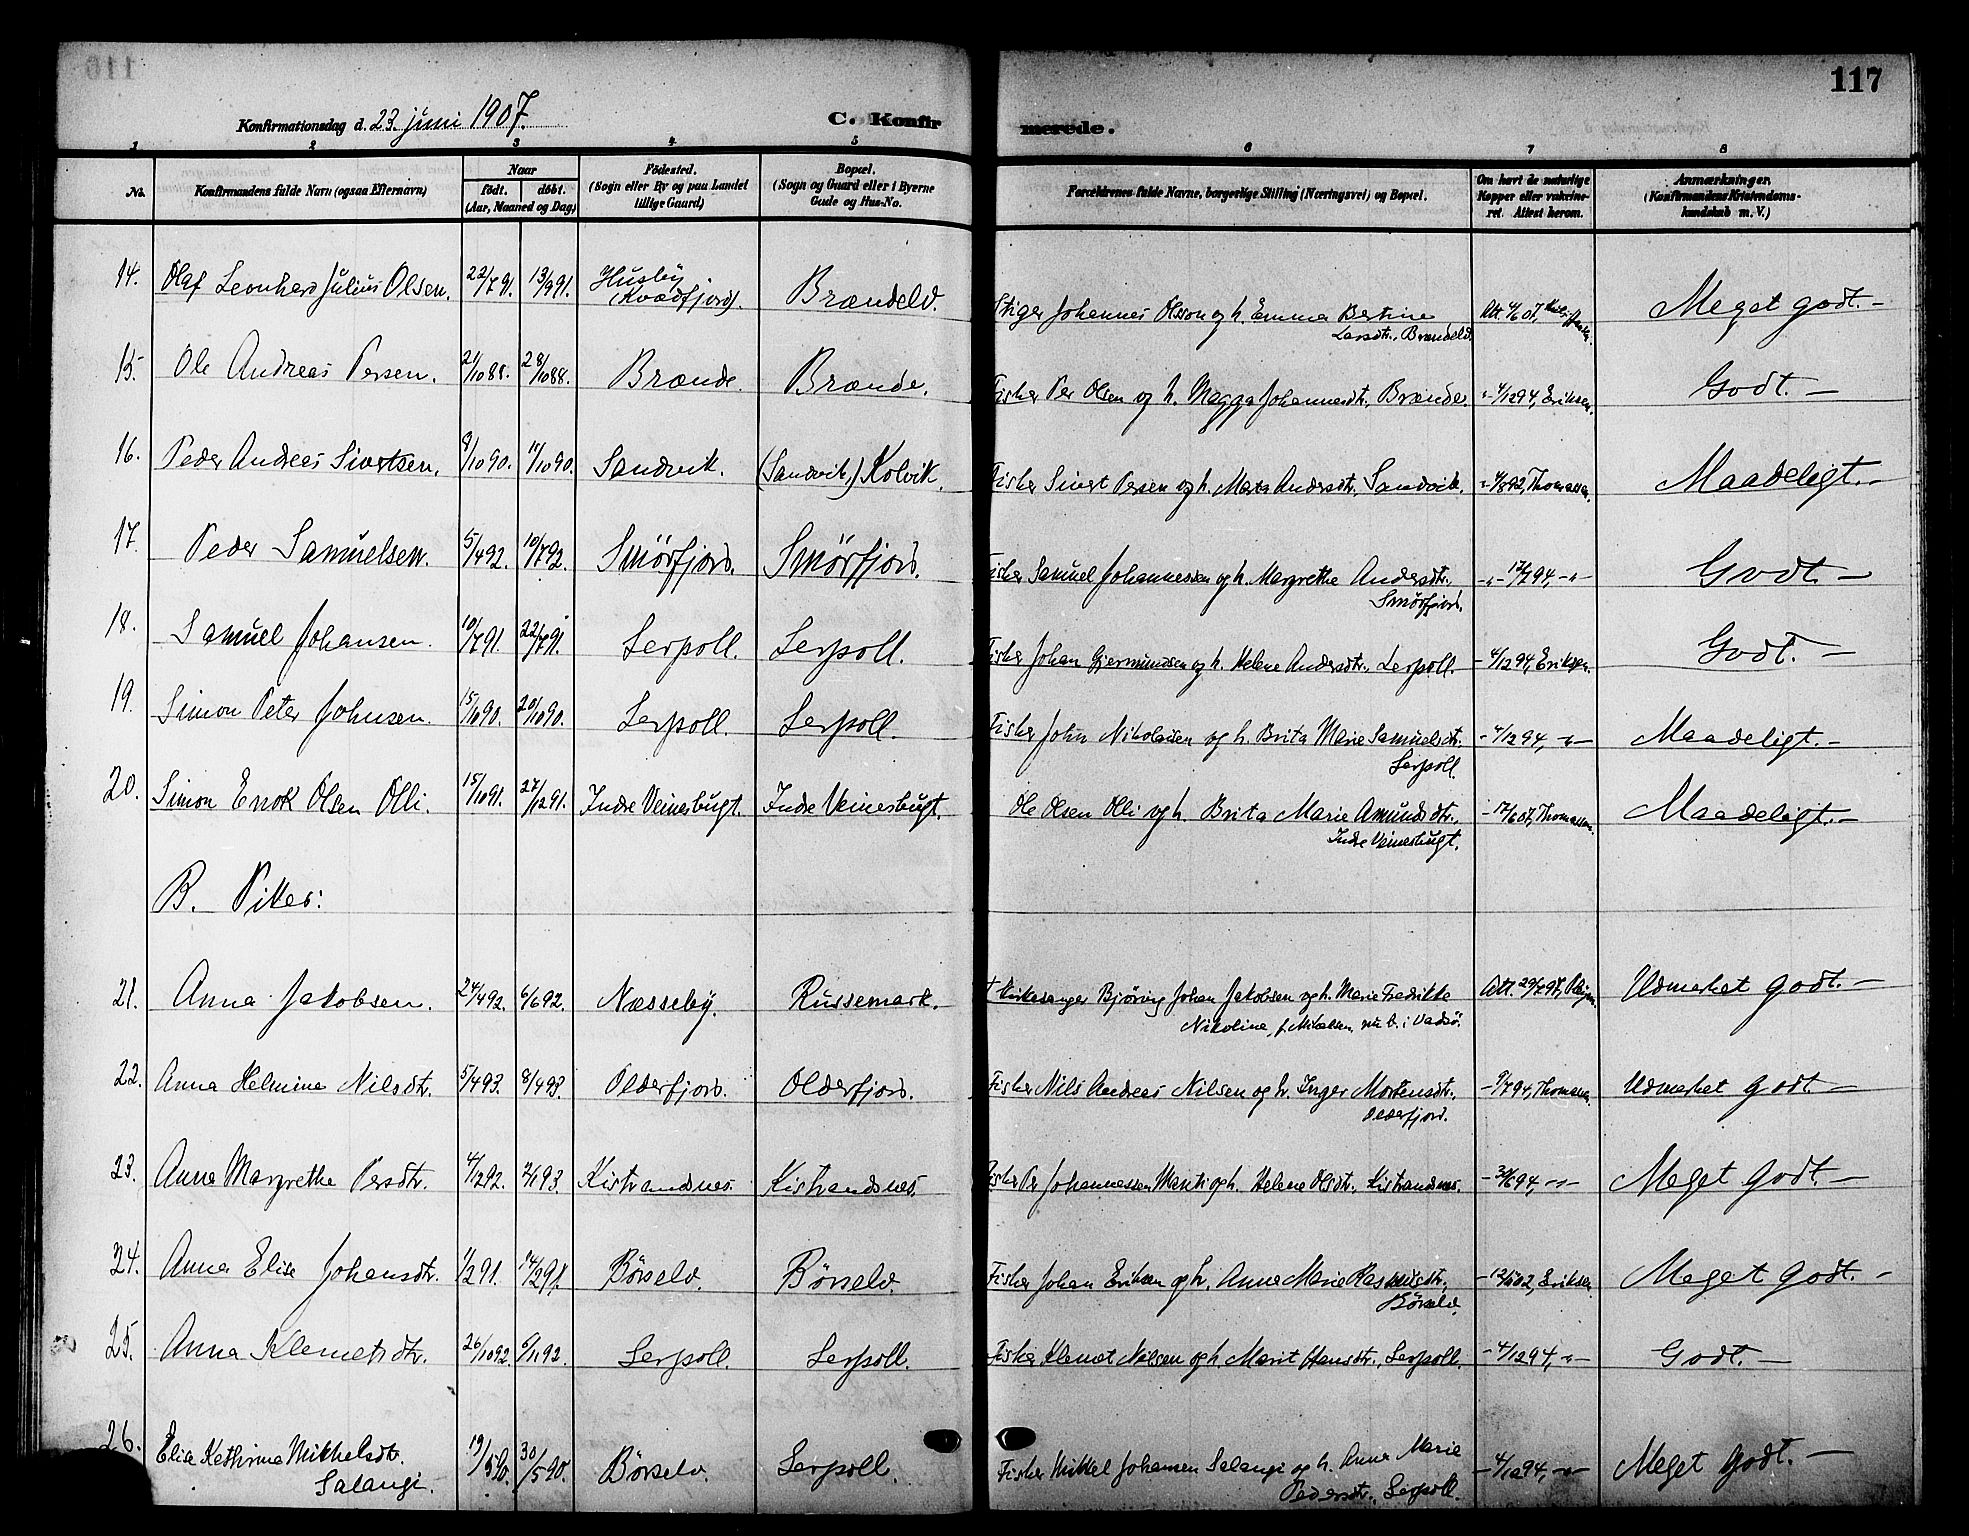 117
Konfirmationsdag d. 23. juni 1907.
C. Konfirmerede.
1 2 3 4 5 6 7 8
No.
Konfirmandens fulde Navn (ogsaa Efternavn)
Naar
født. døbt.
(Aar, Maaned og Dag)
Fødested.
(Sogn eller By og paa Landet
tillige Gaard)
Bopæl.
(Sogn og Gaard eller i Byerne
Gade og Hus-No.
Forældrenes fulde Navne, borgerlige Stilling (Næringsvei) og Bopæl.
Om havt de naturlige
Kopper eller vakcine-
ret. Attest herom.
Anmærkninger.
(Konfirmandens Kristendoms-
kundskab m. V.)
14. Olaf Leonhard Julius Olsen. 22/7 91. 13/9 91. Husby (Kvædfjord). Brændelv. Stiger Johannes Olsson og h. Emma Bertine Larsdtr., Brændelv. Att. 4/6 07, Meget godt. -
15. Ole Andreas Persen. 21/10 88. 28/10 88. Brænde. Brænde. Fisker Per Olsen og h. Magga Johannesdtr., Brænde. - 4/12 94, Eriksen. Godt. -
16. Peder Andreas Sivertsen. 8/10 90. 11/10 90. Sandvik. (Sandvik,) Kolvik. Fisker Sivert Persen og h. Marta Andersdtr. Sandvik. - 4/8 92, Thomassen. Maadeligt. -
17. Peder Samuelsen. 5/4 92. 10/7 92. Smörfjord. Smörfjord. Fisker Samuel Johannessen og h. Margrethe Andersdtr. Smörfjord. -"- 17/7 94, -"- Godt. -
18. Samuel Johansen. 10/7 91. 22/7 91. Lerpoll. Lerpoll. Fisker Johan Gjermundsen og h. Helene Andersdtr., Lerpoll. - 4/12 94, Eriksen. Godt. -
19. Simon Peter Johnsen. 15/10 90. 20/10 90. Lerpoll. Lerpoll. Fisker John Nikolaisen og h. Brita Marie Samuelsdtr. Lerpoll. - 4/12 94, -"- Maadeligt. -
20. Simon Enok Olsen Olli. 15/10 91. 27/12 91. Indre Veinesbugt. Indre Veinesbugt. Ole Olsen Olli og h. Brita Marie Amundsdtr., Indre Veinesbugt. - 17/6 07, Thomassen. Maadeligt. -
B. Piker:
21. Anna Jakobsen. 24/4 92. 6/6 92. Næsseby. Russemark. † Kirkesanger Björing Johan Jakobsen og h. Marie Fredrikke Nikoline, f. Mikalsen, nu b. i Vadsö. Att. 29/7 97, Udmerket godt. -
22. Anna Helmine Nilsdtr. 5/4 93. 8/4 93. Olderfjord. Olderfjord. Fisker Nils Andreas Nilsen og h. Inger Mortensdtr., Olderfjord. - 9/7 94, Thomassen. Udmerket godt -
23. Anna Margrethe Persdtr. 4/12 92. 2/1 93. Kistrandsnes. Kistrandsnes. Fisker Per Johannessen Manti og h. Helene Olsdtr., Kistrandsnes. - 30/6 94, -"- Meget godt. -
24. Anna Elise Johansdtr. 1/2 91. 14/2 91. Börselv. Börselv. Fisker Johan Eriksen og h. Anne Marie Rasmusdtr., Börselv. Eriksen Meget godt. -
25. Anna Klemetsdtr. 26/10 92. 6/11 92. Lerpoll. Lerpoll. Fisker Klemet Nilsen og h. Marit Hansdtr., Lerpoll. - 4/12 94, -"- Godt. -
26. Elisa Kathrina Mikkelsdtr. Salangi. 19/5 90. 30/5 90. Börselv. Lerpoll. Fisker Mikkel Johansen Salangi og h. Anna Marie Pedersdtr., Lerpoll. - 4/12 94, -"- Meget godt. -